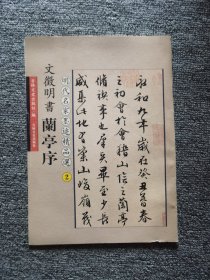 永和九年歲在癸丑暮春
之初會於會稽山陰之蘭亭
脩禊事也羣賢畢至少長
咸集此地有崇山峻嶺茂
明代名家墨迹精品選 2
文徵明書 蘭亭序